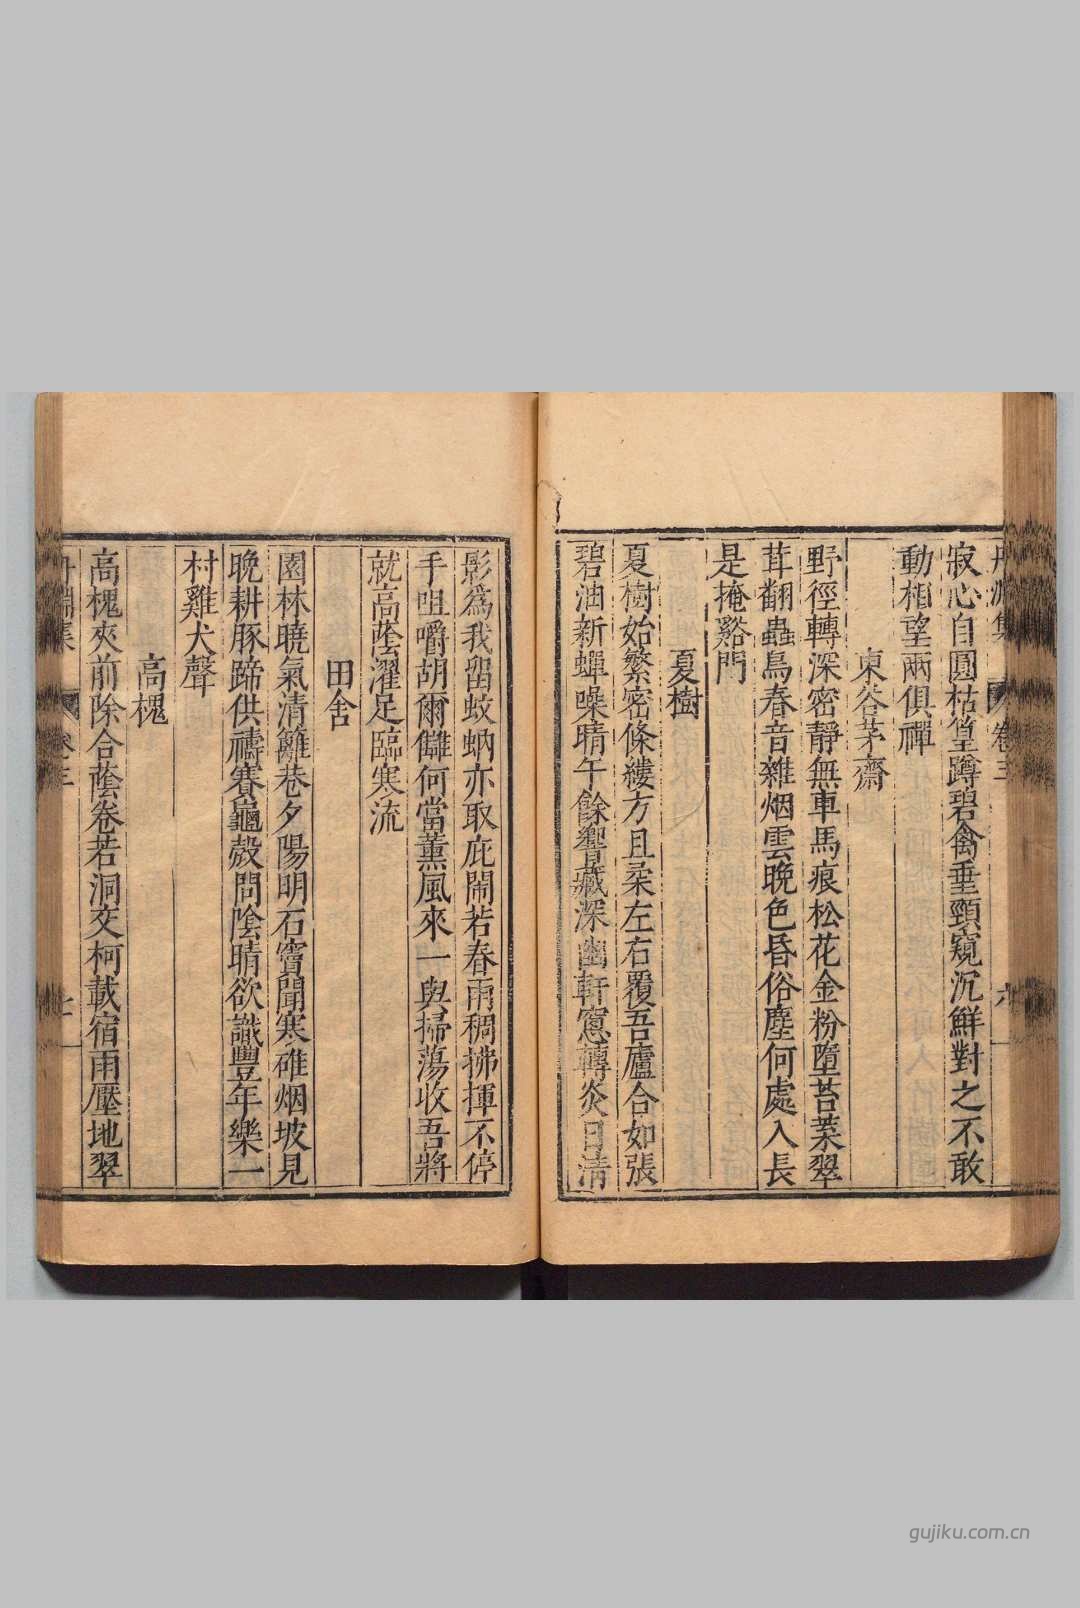 寂心自圓枯篁蹲碧禽垂頸窺沉鮮對之不敢
動相望兩俱禪
東谷茅齋
野徑轉深密靜無車馬痕松花金粉墮苔葉翠
茸翻蟲鳥春音雜烟雲晚色昏俗塵何處入長
是掩谿門
夏樹
夏樹始繁密條縷方且柔左右覆吾廬合如張
碧油新蟬噪晴午餘響藏深幽軒窻轉炎日清
影爲我留蚊蚋亦取庇閙若春雨稠拂揮不停
手咀嚼胡爾讎何當薰風來一與掃蕩收吾將
就高蔭濯足臨寒流
田舍
園林曉氣清籬巷夕陽明石竇聞寒碓烟坡見
晚耕豚蹄供禱賽龜殼問陰晴欲識豐年樂一
村雞犬聲
高槐
高槐夾前除合蔭卷若洞交柯載宿雨壓地翠
卷三
gujiku.com.cn